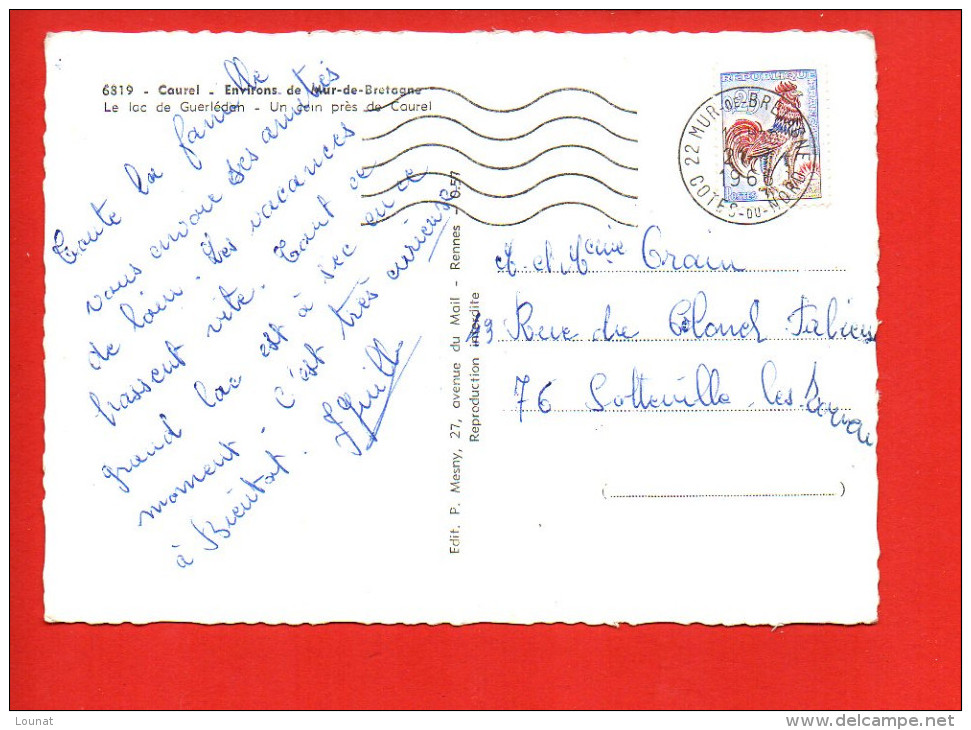 6819 - Caurel - Environs de Mur-de-Bretagne
Le lac de Guerlédan - Un coin près de Caurel
Toute la famille
vous envoie ses amitiés
de loin. Les vacances
passent vite. Tout ce
grand lac est à sec en ce
moment. C'est très curieux
à Bientôt.
Edit. P. Mesny, 27, avenue du Mail - Rennes - 0.57
Reproduction interdite
REPUBLIQUE FRANÇAISE
0,25
POSTES
22 MUR-DE-BRETAGNE
196
COTES-DU-NORD
M et Mme Crain
Rue du Colonel Fabien
76 Sotteville les Rouen
(                    )
Lounat
delcampe.net